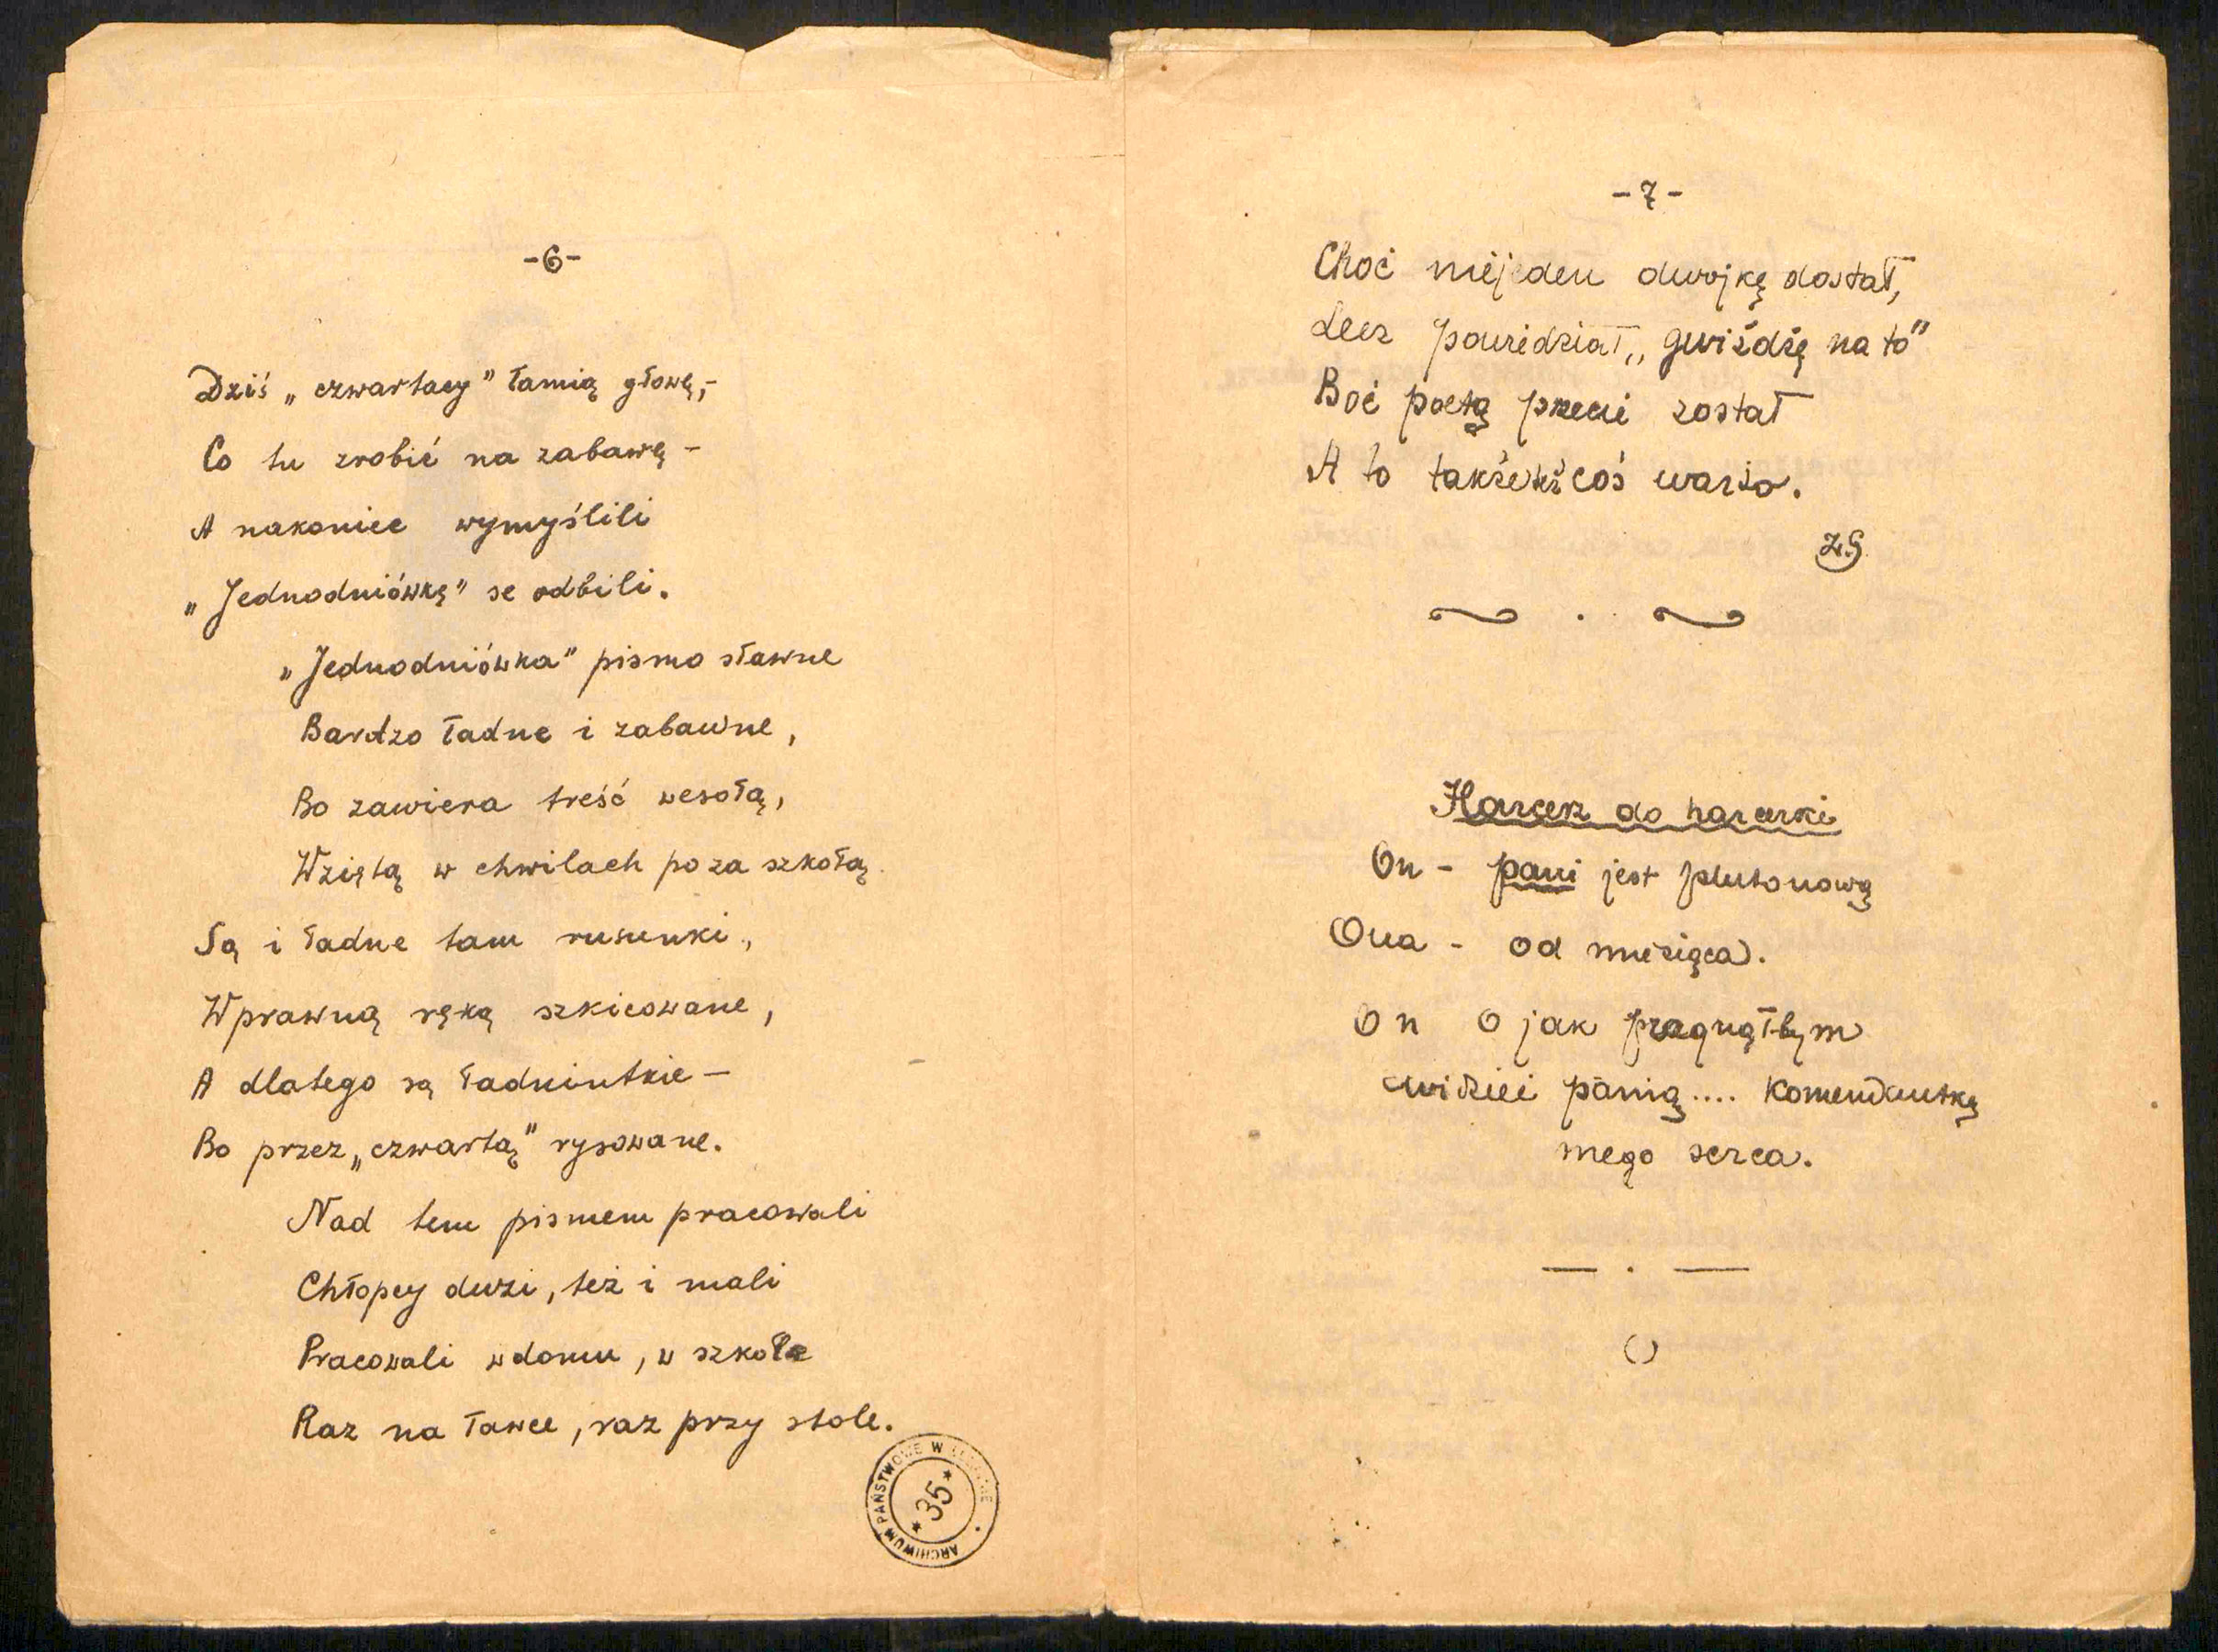 -6-
Dziś „czwartacy” łamią głowę,-
Co tu zrobić na zabawę -
A nakoniec wymyślili
„Jednodniówkę” se odbili.
„Jednodniówka” pismo sławne
Bardzo ładne i zabawne,
Bo zawiera treść wesołą,
Wziętą w chwilach poza szkołą.
Są i ładne tam rusunki,
Wprawną ręką szkicowane,
A dlatego są ładniutkie —
Bo przez „czwartą” rysowane.
Nad tem pismem pracowali
Chłopcy duzi, też i mali
Pracowali w domu, w szkole
Raz na ławce, raz przy stole.
ARCHIWUM PAŃSTWOWE W
* 35 *
-7-
Choć niejeden dwojkę dostał,
Lecz powiedział „gwiżdżę na to”
Boć poetą przeci został
A to także też coś warto.
ZG
Harcerz do harcerki
On - pani jest plutonową
Ona - od miesiąca.
On O jak pragnąłbym
widzieć panią.... Komendantką
mego serca.